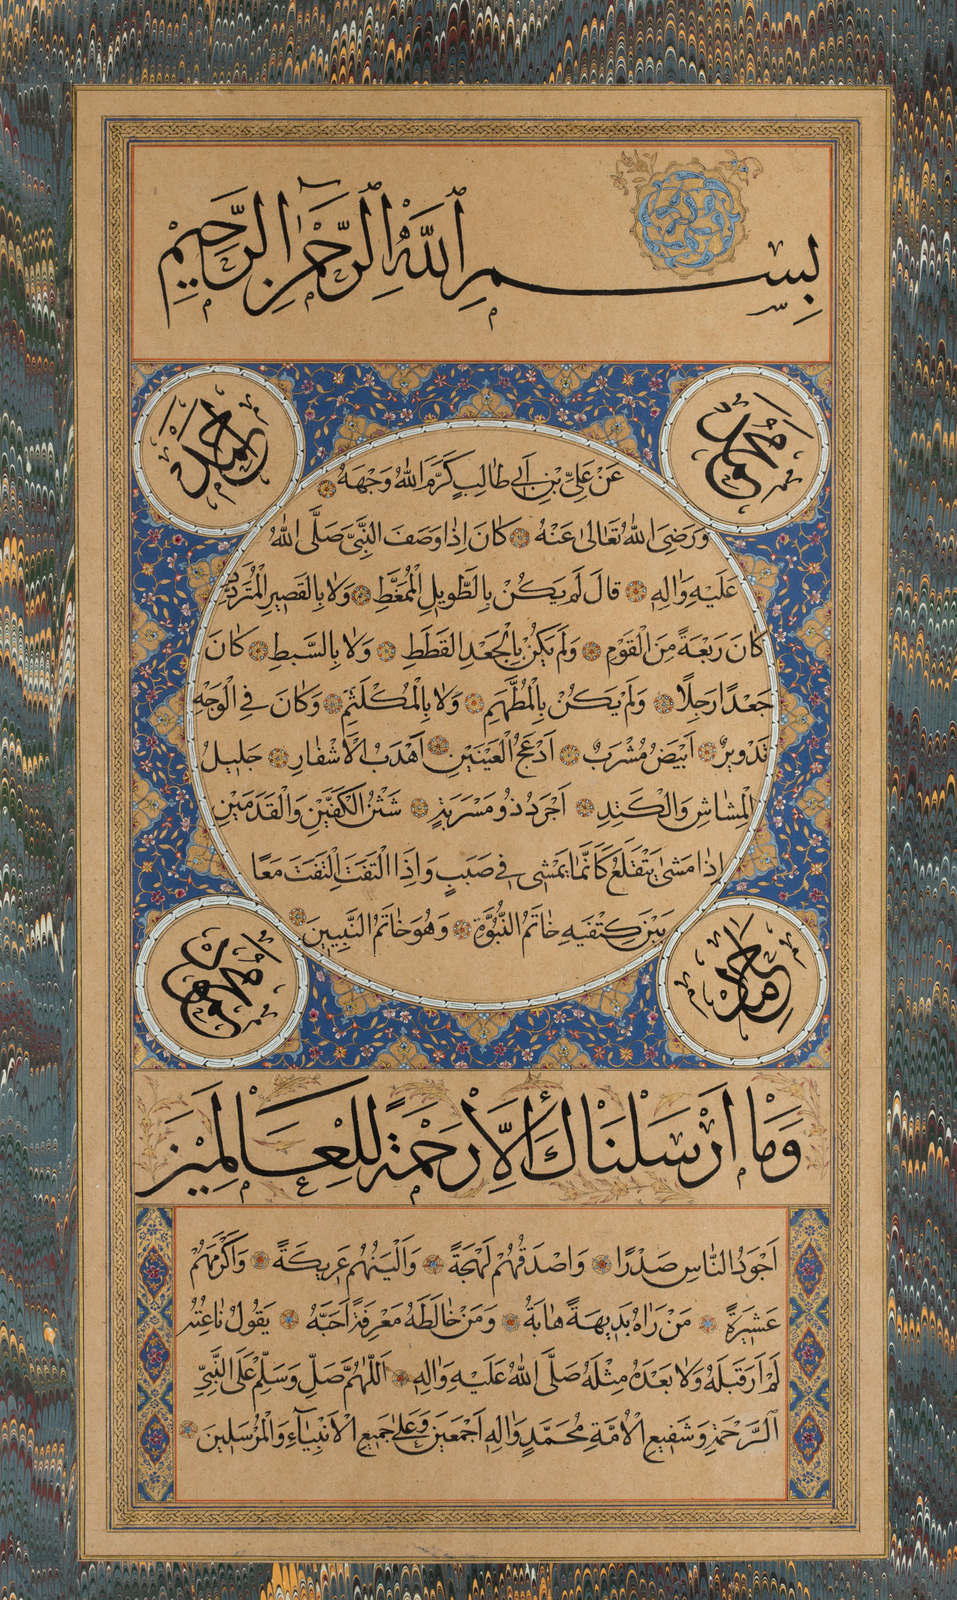 بِسْمِ اللَّهِ الرَّحْمٰنِ الرَّحِيمِ
محمد
احمد
عَنْ عَلِيِّ بْنِ اَبِي طَالِبٍ كَرَّمَ اللّٰهُ وَجْهَهُ
وَرَضِيَ اللّٰهُ تَعَالٰى عَنْهُ كَانَ اِذَا وَصَفَ النَّبِيَّ صَلَّى اللّٰهُ
عَلَيْهِ وَاٰلِهِ قَالَ لَمْ يَكُنْ بِالطَّوِيلِ الْمُمَّغِطِ وَلَا بِالْقَصِيرِ الْمُتَرَدِّدِ
كَانَ رَبْعَةً مِنَ الْقَوْمِ وَلَمْ يَكُنْ بِالْجَعْدِ الْقَطَطِ وَلَا بِالسَّبِطِ كَانَ
جَعْدًا رَجِلًا وَلَمْ يَكُنْ بِالْمُطَهَّمِ وَلَا بِالْمُكَلْثَمِ وَكَانَ فِي الْوَجْهِ
تَدْوِيرٌ اَبْيَضُ مُشْرَبٌ اَدْعَجُ الْعَيْنَيْنِ اَهْدَبُ الْاَشْفَارِ جَلِيلُ
الْمُشَاشِ وَالْكَتَدِ اَجْرَدُ ذُو مَسْرَبَةٍ شَثْنُ الْكَفَّيْنِ وَالْقَدَمَيْنِ
اِذَا مَشٰى يَتَقَلَّعُ كَاَنَّمَا يَمْشِي فِي صَبَبٍ وَاِذَا الْتَفَتَ الْتَفَتَ مَعًا
بَيْنَ كَتِفَيْهِ خَاتَمُ النُّبُوَّةِ وَهُوَ خَاتَمُ النَّبِيِّينَ
حامد
محمود
وَمَا اَرْسَلْنَاكَ اِلَّا رَحْمَةً لِلْعَالَمِينَ
اَجْوَدُ النَّاسِ صَدْرًا وَاَصْدَقُهُمْ لَهْجَةً وَاَلْيَنُهُمْ عَرِيكَةً وَاَكْرَمُهُمْ
عَشِيرَةً مَنْ رَاٰهُ بَدِيهَةً هَابَهُ وَمَنْ خَالَطَهُ مَعْرِفَةً اَحَبَّهُ يَقُولُ نَاعِتُهُ
لَمْ اَرَ قَبْلَهُ وَلَا بَعْدَهُ مِثْلَهُ صَلَّى اللّٰهُ عَلَيْهِ وَاٰلِهِ اَللّٰهُمَّ صَلِّ وَسَلِّمْ عَلَى النَّبِيِّ
الرَّحْمَةِ وَشَفِيعِ الْاُمَّةِ مُحَمَّدٍ وَاٰلِهِ اَجْمَعِينَ وَعَلٰى جَمِيعِ الْاَنْبِيَاءِ وَالْمُرْسَلِينَ